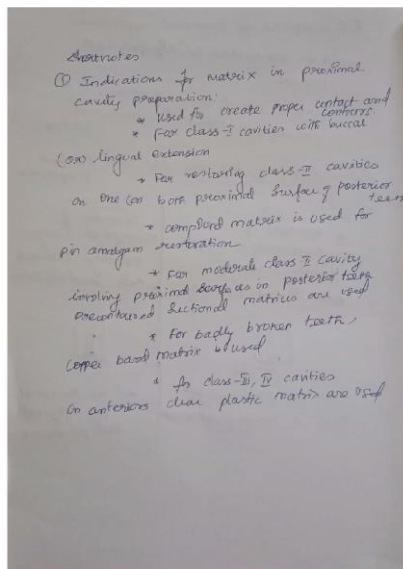 Shortnotes
① Indications for matrix in proximal
cavity preparation:
* used for create proper contact and
contours.
* For class-I cavities with buccal
(or) lingual extension
* For restoring class-II cavities
on one (or) both proximal surface of posterior
teeth
* compound matrix is used for
pin amalgam restoration
* For moderate class II cavity
involving proximal surfaces in posterior teeth
Precontoured Sectional matrices are used
* For badly broken teeth,
Copper band matrix is used
* for class-III, IV cavities
in anteriors clear plastic matrix are used